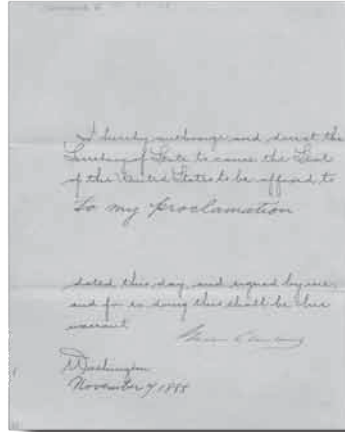 I hereby authorize and direct the
Secretary of State to cause the Seal
of the United States to be affixed to
to my Proclamation
dated this day, and signed by me;
and for so doing this shall be his
warrant.
Washington
November 7 1888